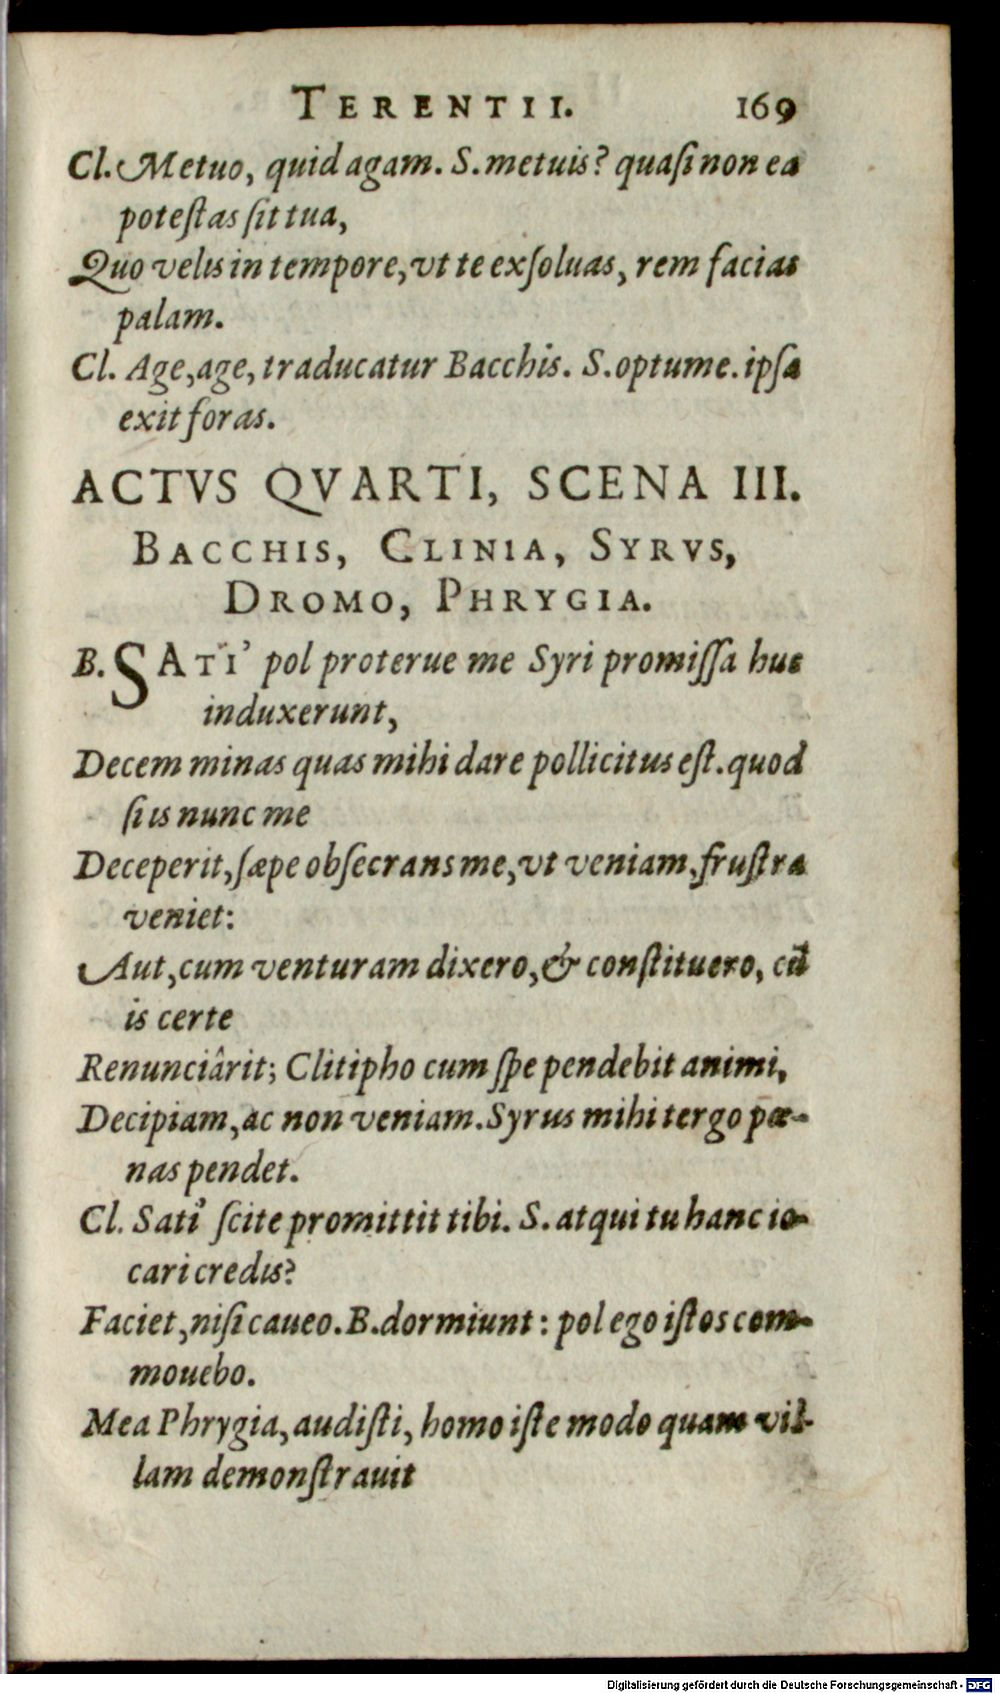 TERENTII. 169
Cl. Metuo, quid agam. S. metuis? quaſi non ea
poteſtas ſit tua,
Quo velis in tempore, vt te exſoluas, rem facias
palam.
Cl. Age, age, traducatur Bacchis. S. optume. ipſa
exit foras.
ACTVS QVARTI, SCENA III.
BACCHIS, CLINIA, SYRVS,
DROMO, PHRYGIA.
B. SATI' pol proterue me Syri promiſſa huc
induxerunt,
Decem minas quas mihi dare pollicitus eſt. quod
ſi is nunc me
Deceperit, ſæpe obſecrans me, vt veniam, fruſtra
veniet:
Aut, cum venturam dixero, & conſtituero, cū
is certe
Renunciârit; Clitipho cum ſpe pendebit animi,
Decipiam, ac non veniam. Syrus mihi tergo pœ-
nas pendet.
Cl. Sati' ſcite promittit tibi. S. atqui tu hanc io-
cari credis?
Faciet, niſi caueo. B. dormiunt: pol ego iſtos com-
mouebo.
Mea Phrygia, audiſti, homo iſte modo quam vil-
lam demonſtrauit
Digitalisierung gefördert durch die Deutsche Forschungsgemeinschaft - DFG